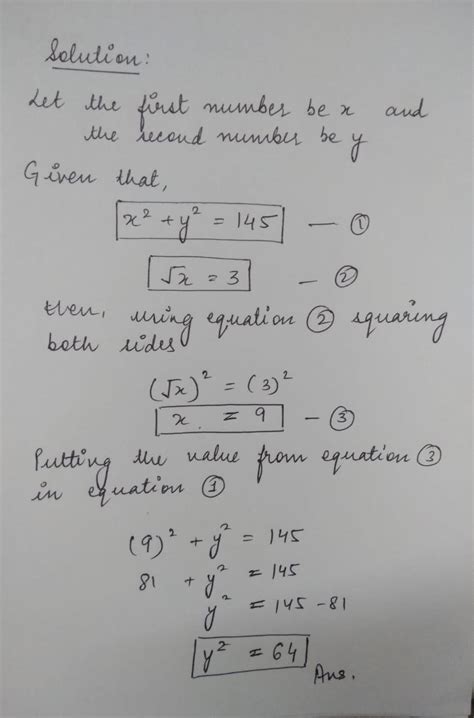 Solution:
Let the first number be x and
the second number be y
Given that,
x² + y² = 145 — ①
√x = 3 — ②
then, using equation ② squaring
both sides
(√x)² = (3)²
x = 9 — ③
Putting the value from equation ③
in equation ①
(9)² + y² = 145
81 + y² = 145
y² = 145 - 81
y² = 64
Ans.